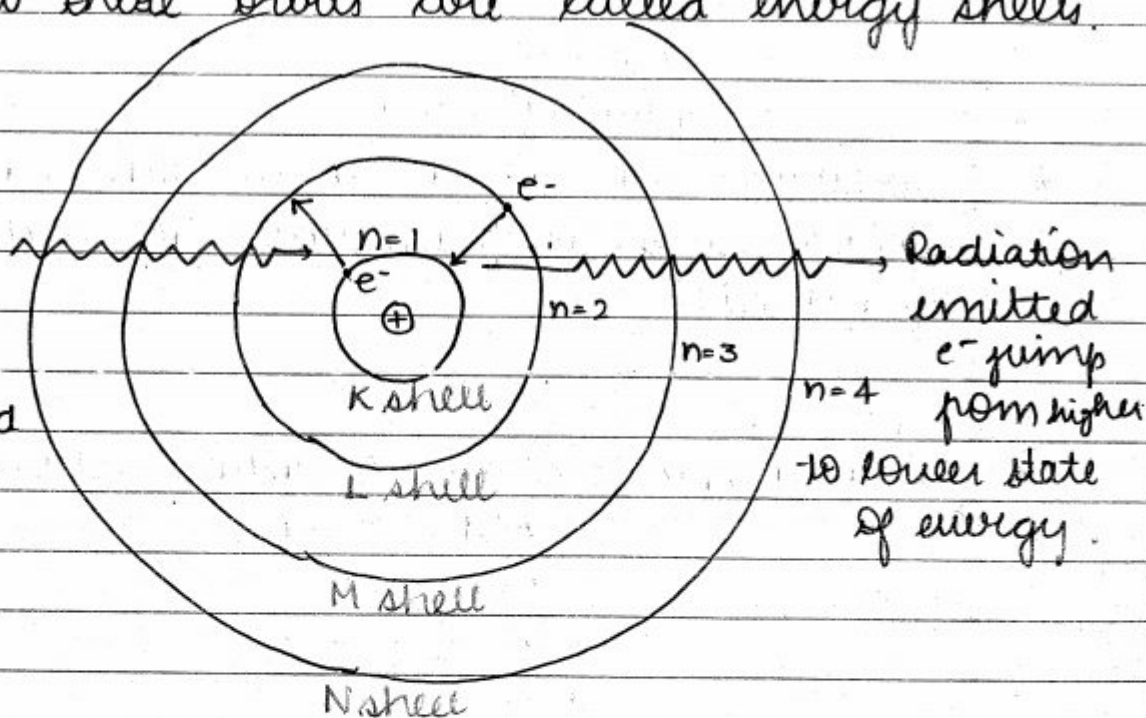 these are called energy shells.
e-
n=1
e-
+
n=2
n=3
n=4
K shell
L shell
M shell
N shell
d
Radiation
emitted
e- jump
from higher
to lower state
of energy.